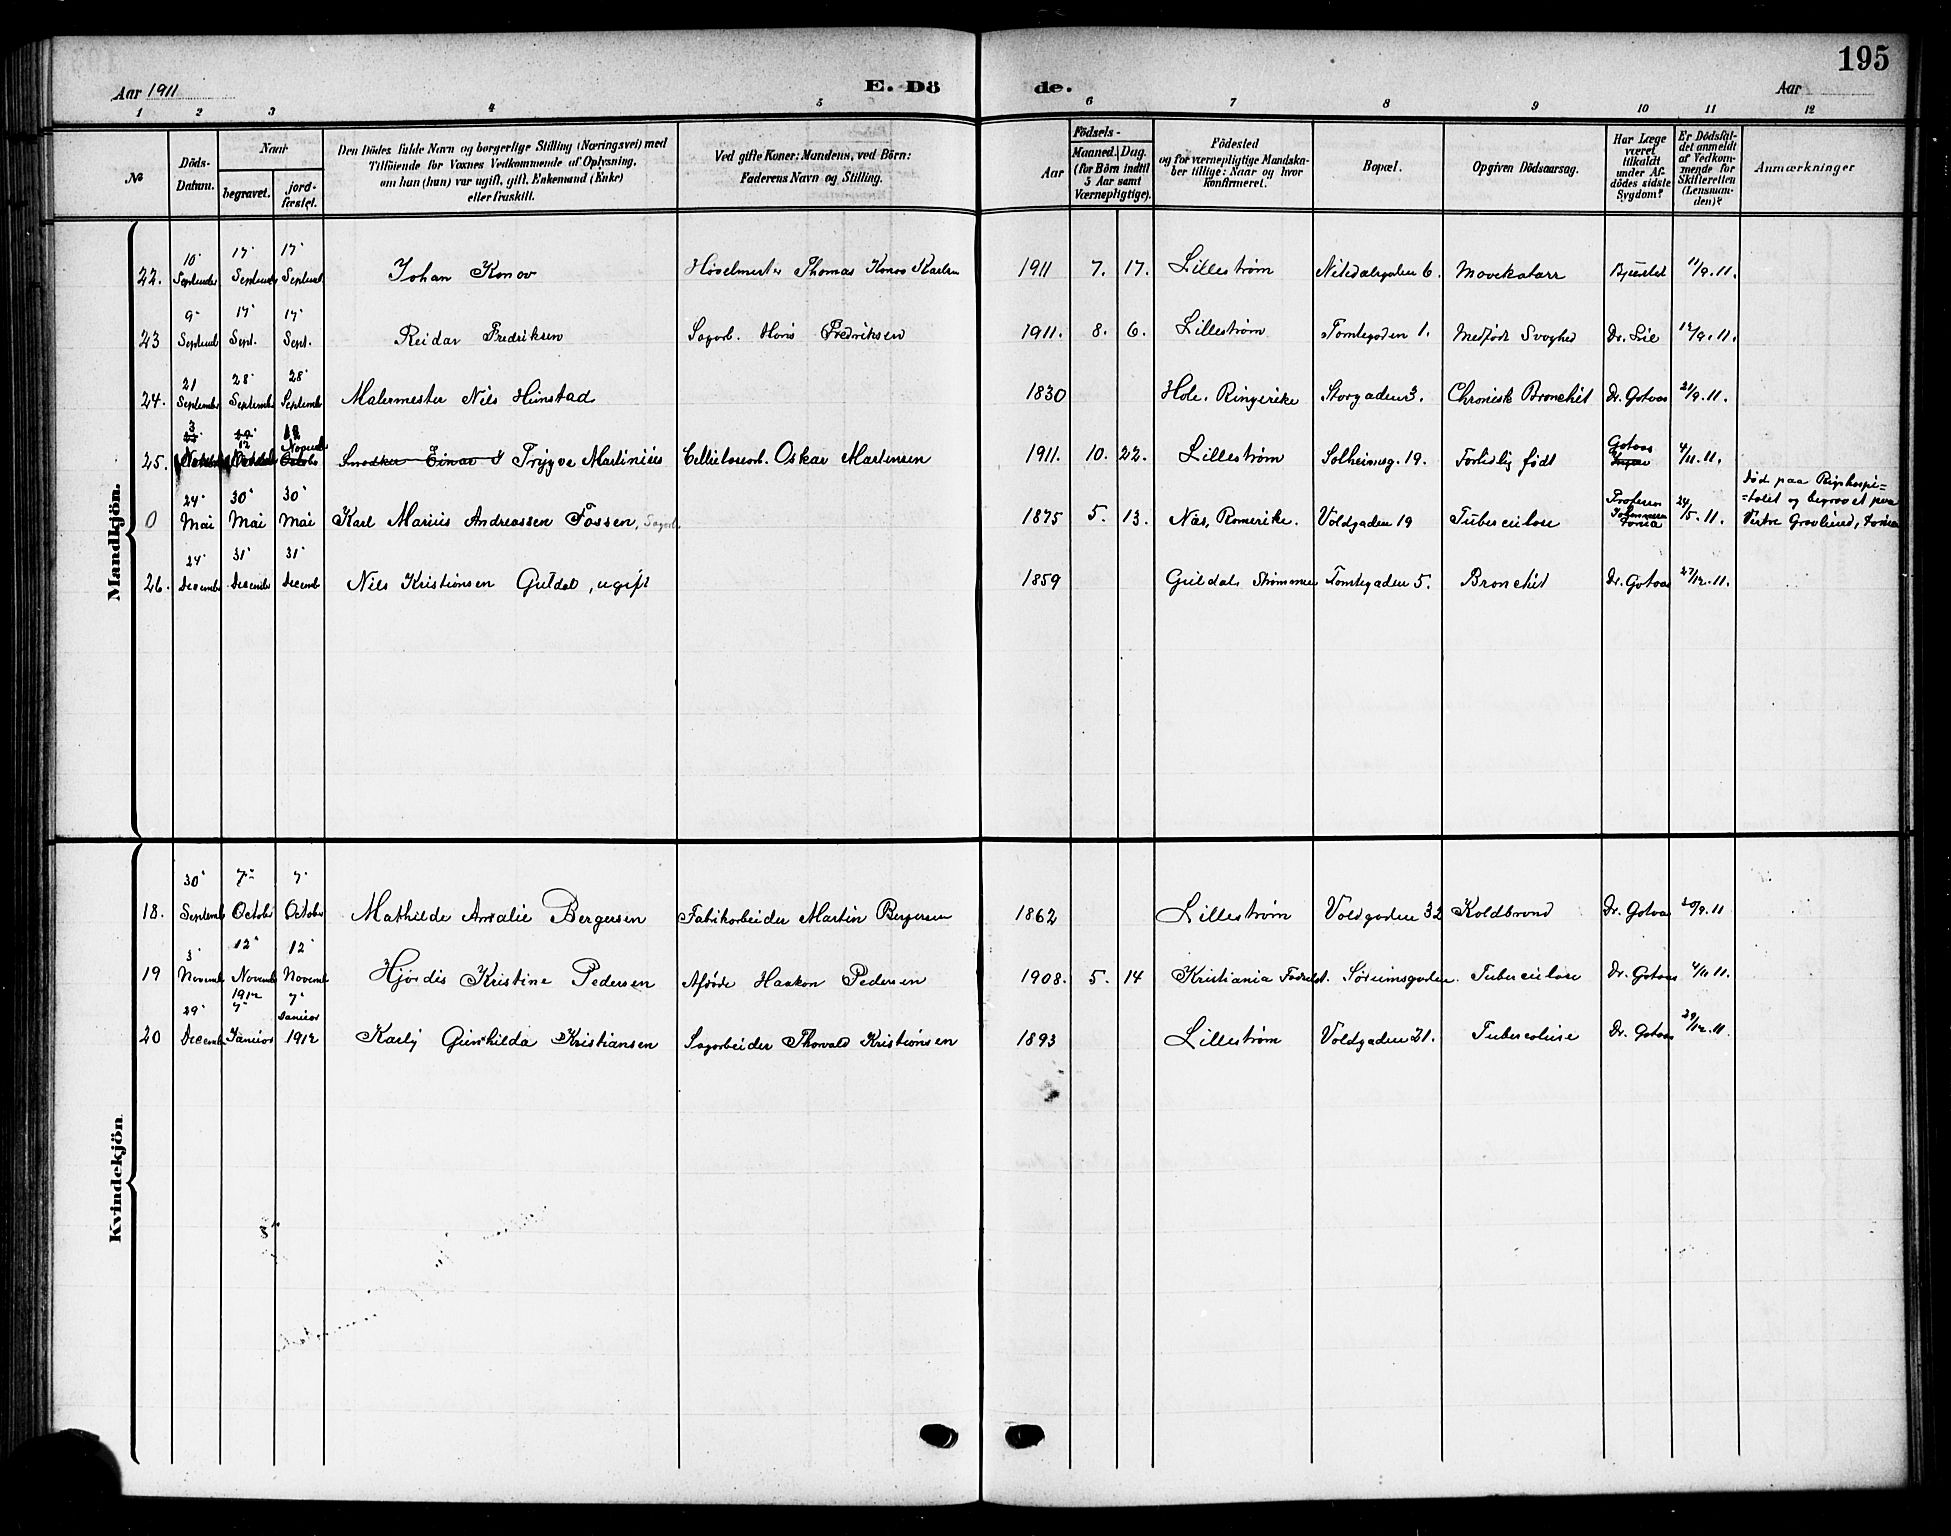 195
Aar 1911
E. Dö
de.
Aar
1 2 3 4 5 6 7 8 9 10 11 12
No
Döds-
Datum.
Naar
begravet.
jord-
fæstet.
Den Dödes fulde Navn og borgerlige Stilling (Næringsvei) med
Tilföiende for Voxnes Vedkommende af Oplysning,
om han (hun) var ugift, gift, Enkemand (Enke)
eller fraskilt.
Ved gifte Koner: Mandens, ved Börn:
Faderens Navn og Stilling.
Födsels-
Aar
Maaned. Dag.
(for Börn indtil
5 Aar samt
Værnepligtige).
Födested
og for værnepligtige Mandska-
ber tillige: Naar og hvor
konfirmeret.
Bopæl.
Opgiven Dödsaarsag.
Har Læge
været
tilkaldt
under Af-
dödes sidste
Sygdom?
Er Dödsfal-
det anmeldt
af Vedkom-
mende for
Skifteretten
(Lensman-
den)?
Anmærkninger
Mandkjön.
10 17 17
22. September September Septemb. Johan Konov Høvelmester Thomas Konov Karlsen 1911 7. 17. Lillestrøm Nitedalsgaden 6. Mavekatarr 11/9.11.
9 17 17
23 Septemb Sept. Sept. Reidar Fredriksen Sagarb. Hans Fredriksen 1911. 8. 6. Lillestrøm Tomtegaden 1. Medfødt Svaghed Dr. Lie 12/9.11.
21 28 28
24. September September Septemb Malermester Nils Hunstad 1830 Hole, Ringerike Storgaden 3. Chronisk Bronchit Dr. Gotaas 21/9.11.
3 12 12
25. Novemb Trygve Martinius Cellulosearb. Oskar Martinsen 1911. 10. 22. Lillestrøm Solheimsg. 19. Fortidlig født Gotaas 4/11.11.
24 30 30
0 Mai Mai Mai Karl Marius Andreassen Fossen, Sagarb. 1875 5. 13. Næs, Romerike. Voldgaden 19 Tuberculose Professor Johannessen 24/5.11. Død paa Rigshospi=
=talet og begravet paa
Vestre Gravlund,
24 31 31
26. Decembr Decembr Decemb Nils Kristiansen Guldal, ugift 1859 Guldal, Strømmen Tomtegaden 5. Bronchit Dr. Gotaas 27/12.11.
Kvindekjön
30 7 7
18. Septemb October October Mathilde Amalie Bergersen Fabrikarbeider Martin Bergersen 1862 Lillestrøm Voldgaden 32 Koldbrand Dr. Gotaas 30/9.11
3 12 12
19 Novemb Novemb Novemb Hjørdis Kristine Pedersen Afdøde Haakon Pedersen 1908. 5. 14 Kristiania Fødselst. Sørumsgaden. Tuberculose Dr. Gotaas 4/11 11.
29 1912 7 7 Januar
20 Decemb Januar 1912 Karly Gunhilda Kristiansen Sagarbeider Thorvald Kristiansen 1893 Lillestrøm Voldgaden 21. Tuberculose Dr. Gotaas 29/12.11.